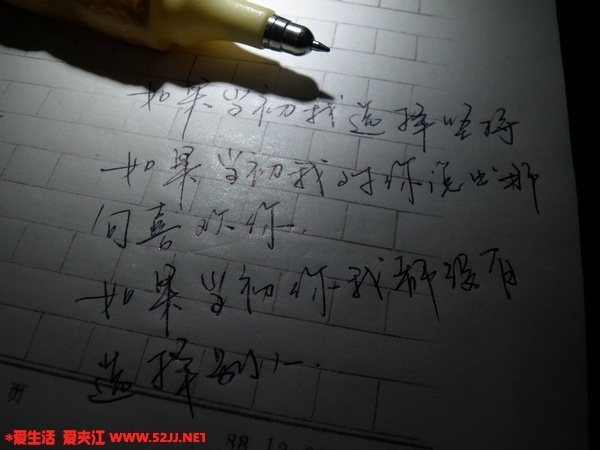 如果当初我选择坚持
如果当初我对你说出那
句喜欢你.
如果当初你我都没有
选择别人.
页
88.12
*爱生活 爱夹江 WWW.52JJ.NET